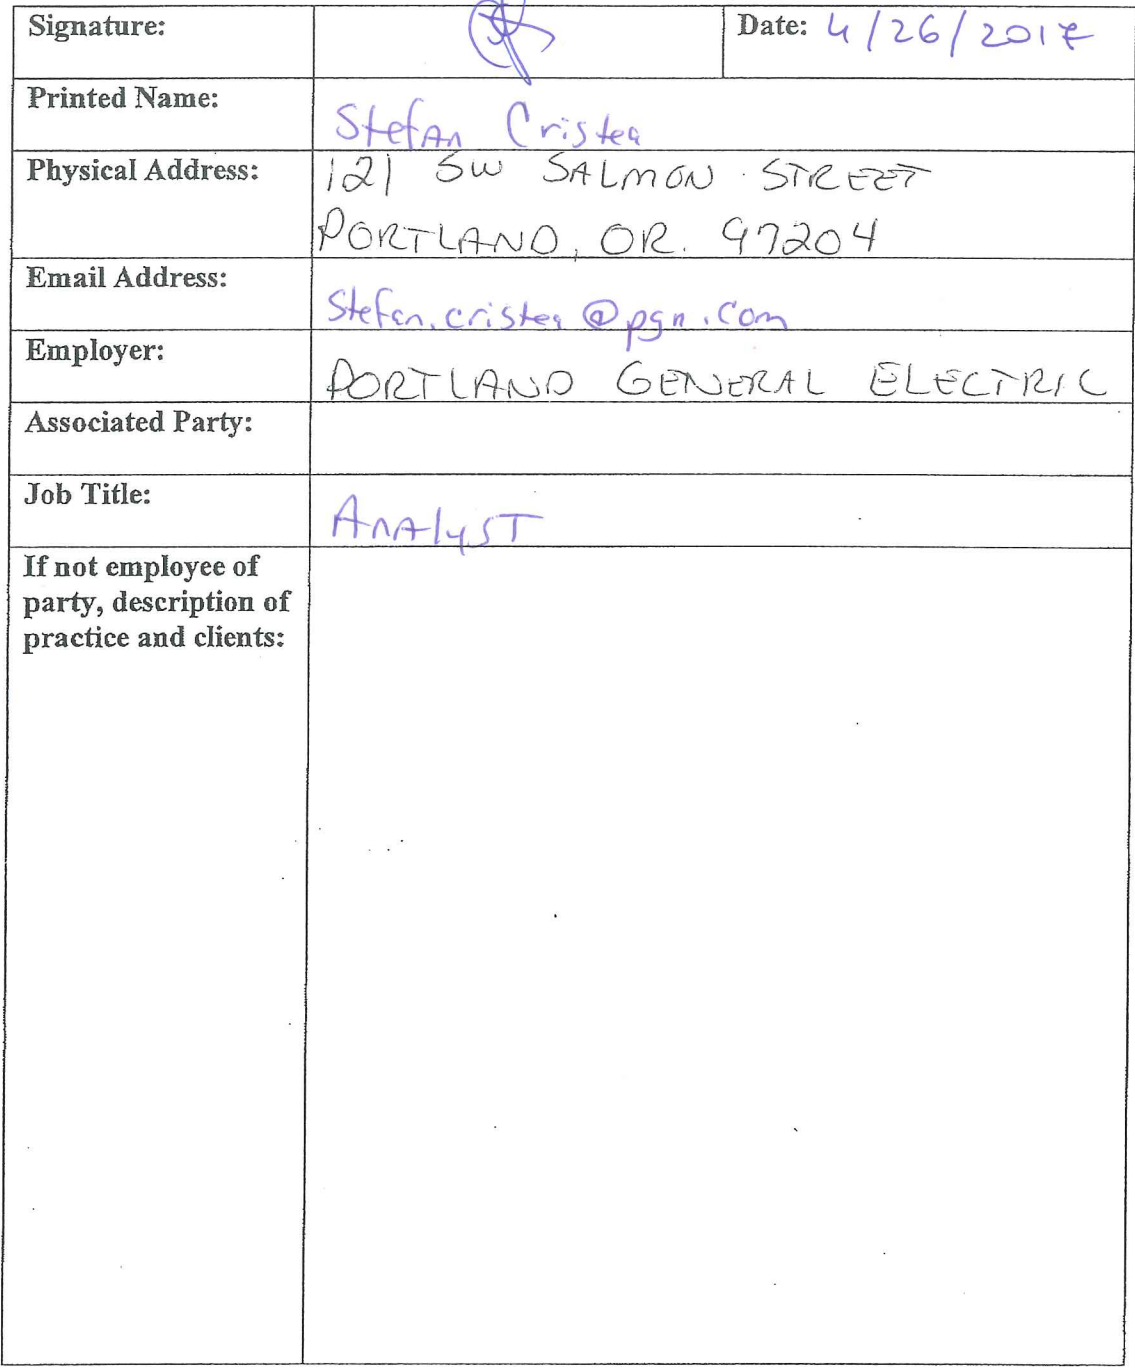 Signature:
Date: 4/26/2017
Printed Name:
Stefan Cristea
Physical Address:
121 SW SALMON STREET
PORTLAND, OR. 97204
Email Address:
Stefan.cristea@pgn.com
Employer:
PORTLAND GENERAL ELECTRIC
Associated Party:
Job Title:
Analyst
If not employee of
party, description of
practice and clients: